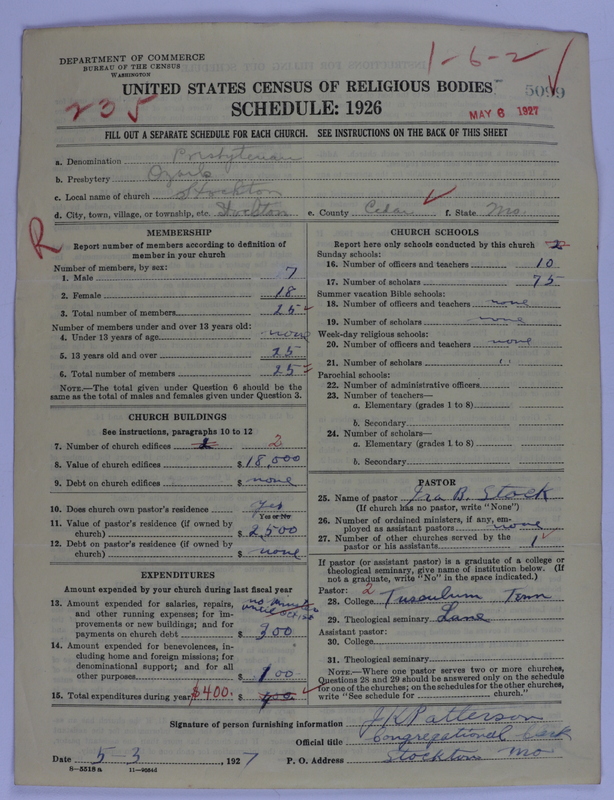 DEPARTMENT OF COMMERCE
BUREAU OF THE CENSUS
WASHINGTON
1-6-2 ✓
UNITED STATES CENSUS OF RELIGIOUS BODIES
5099
235
SCHEDULE: 1926
MAY 6 1927
FILL OUT A SEPARATE SCHEDULE FOR EACH CHURCH. SEE INSTRUCTIONS ON THE BACK OF THIS SHEET
a. Denomination Presbyterian
b. Presbytery Ozark
c. Local name of church Stockton
d. City, town, village, or township, etc. Stockton e. County Cedar ✓ f. State Mo.
R
MEMBERSHIP
Report number of members according to definition of
member in your church
Number of members, by sex:
1. Male 7
2. Female 18
3. Total number of members 25
Number of members under and over 13 years old:
4. Under 13 years of age none
5. 13 years old and over 25
6. Total number of members 25
NOTE.—The total given under Question 6 should be the
same as the total of males and females given under Question 3.
CHURCH BUILDINGS
See instructions, paragraphs 10 to 12
7. Number of church edifices 2 2
8. Value of church edifices $ 18,000
9. Debt on church edifices $ none
10. Does church own pastor's residence yes
Yes or No
11. Value of pastor's residence (if owned by
church) $ 2,500
12. Debt on pastor's residence (if owned by
church) $ none
EXPENDITURES
Amount expended by your church during last fiscal year
13. Amount expended for salaries, repairs,
and other running expenses; for im-
provements or new buildings; and for
payments on church debt $ 300
no
until
14. Amount expended for benevolences, in-
cluding home and foreign missions; for
denominational support; and for all
other purposes $ 100
15. Total expenditures during year $400. $ 400
CHURCH SCHOOLS
Report here only schools conducted by this church 2
Sunday schools:
16. Number of officers and teachers 10
17. Number of scholars 75
Summer vacation Bible schools:
18. Number of officers and teachers none
19. Number of scholars none
Week-day religious schools:
20. Number of officers and teachers none
21. Number of scholars "
Parochial schools:
22. Number of administrative officers
23. Number of teachers—
a. Elementary (grades 1 to 8)
b. Secondary
24. Number of scholars—
a. Elementary (grades 1 to 8)
b. Secondary
PASTOR
25. Name of pastor Ira B. Stock
(If church has no pastor, write "None")
26. Number of ordained ministers, if any, em-
ployed as assistant pastors none
27. Number of other churches served by the
pastor or his assistants 1 ✓
If pastor (or assistant pastor) is a graduate of a college or
theological seminary, give name of institution below. (If
not a graduate, write "No" in the space indicated.)
Pastor: 2
28. College Tusculum Tenn
29. Theological seminary Lane
Assistant pastor:
30. College
31. Theological seminary
NOTE.—Where one pastor serves two or more churches,
Questions 28 and 29 should be answered only on the schedule
for one of the churches; on the schedules for the other churches,
write "See schedule for church."
Signature of person furnishing information J K Patterson
Official title Congregational Clerk
Date 5-3, 1927 P. O. Address Stockton Mo
8—5518 a 11—9084d